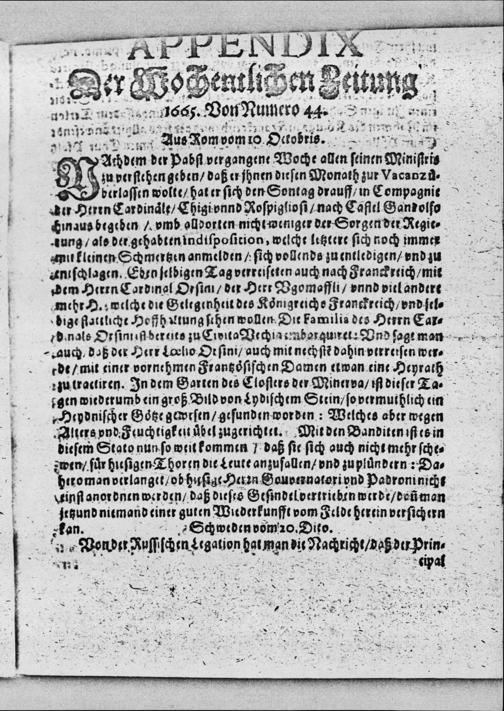 APPENDIX
Der Wochentlichen Zeitung
1665. Von Numero 44.
Aus Rom vom 10 Octobris.
NAchdem der Pabst vergangene Woche allen seinen Ministris
zu verstehen geben / daß er ihnen diesen Monath zur Vacanz ü-
berlassen wolte / hat er sich den Sontag drauff / in Compagnie
der Herrn Cardinäle / Chigi vnnd Rospigliosi / nach Castel Gandolfo
hinaus begeben / vmb alldorten nicht weniger der Sorgen der Regie-
rung / als der gehabten indisposition, welche letztere sich noch immer
mit kleinen Schmertzen anmelden / sich vollends zu entledigen / vnd zu
entschlagen. Eben selbigen Tag verreiseten auch nach Franckreich / mit
dem Herrn Cardinal Orsini / der Herr Vgomaffli / vnnd viel andere
mehr H. welche die Gelegenheit des Königreichs Franckreich / vnd sel-
bige stattliche Hoffhaltung sehen wollen. Die Familia des Herrn Car-
dinals Orsini ist bereits zu Civita Vechia embarquiret: Vnd sagt man
auch, daß der Herr Lœlio Orsini / auch mit nechste dahin verreisen wer-
de / mit einer vornehmen Französischen Damen etwan eine Heyrath
zu tractiren. In dem Garten des Closters der Minerva / ist dieser Ta-
gen wiederumb ein groß Bild von Lydischem Stein / so vermuthlich ein
Heydnischer Götze gewesen / gefunden worden : Welches aber wegen
Alters vnd Feuchtigkeit übel zugerichtet. Mit den Banditen ist es in
diesem Stato nun so weit kommen / daß sie sich auch nicht mehr sche-
wen / für hiesigen Thoren die Leute anzufallen / vnd zu plündern : Da-
hero man verlanget / ob hiesige Herrn Gouvernatori vnd Padroni nichts
einst anordnen werden / daß dieses Gesindel vertrieben werde / denn man
jetzund niemand einer guten Wiederkunfft vom Felde herein versichern
kan.
Schweden vom 20. Dito.
Von der Russischen Legation hat man die Nachricht / daß der Prin-
cipal